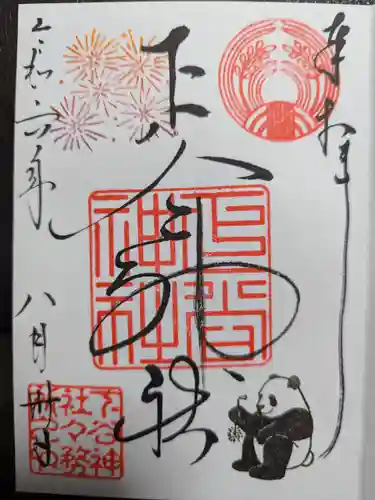 奉拝
下谷神社
下谷神社
令和六年
八月卅日
下谷神社々務所之印